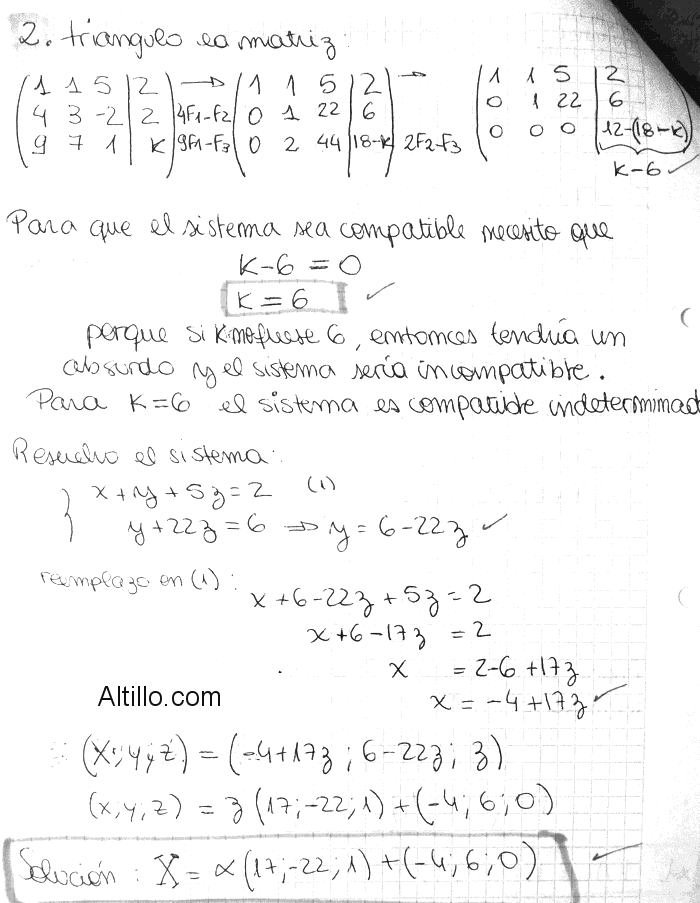 2. triangulo la matriz:
( 1 1 5 | 2 ) → ( 1 1 5 | 2 ) → ( 1 1 5 | 2 )
( 4 3 -2 | 2 ) 4F1-F2 ( 0 1 22 | 6 ) ( 0 1 22 | 6 )
( 9 7 1 | K ) 9F1-F3 ( 0 2 44 | 18-K ) 2F2-F3 ( 0 0 0 | 12-(18-K) )
K-6 ✓
Para que el sistema sea compatible necesito que
K-6 = 0
K = 6 ✓
porque si K no fuese 6, entonces tendría un
absurdo y el sistema sería incompatible.
Para K=6 el sistema es compatible indeterminad
Resuelvo el sistema:
x+y+5z=2 (1)
y+22z=6 ⇒ y=6-22z ✓
reemplazo en (1):
x+6-22z+5z=2
x+6-17z =2
x =2-6+17z
x = -4+17z ✓
Altillo.com
∴ (x;y;z) = (-4+17z ; 6-22z ; z)
(x,y,z) = z(17;-22;1)+(-4;6;0)
Solución : X = α(17;-22;1)+(-4;6;0) ✓